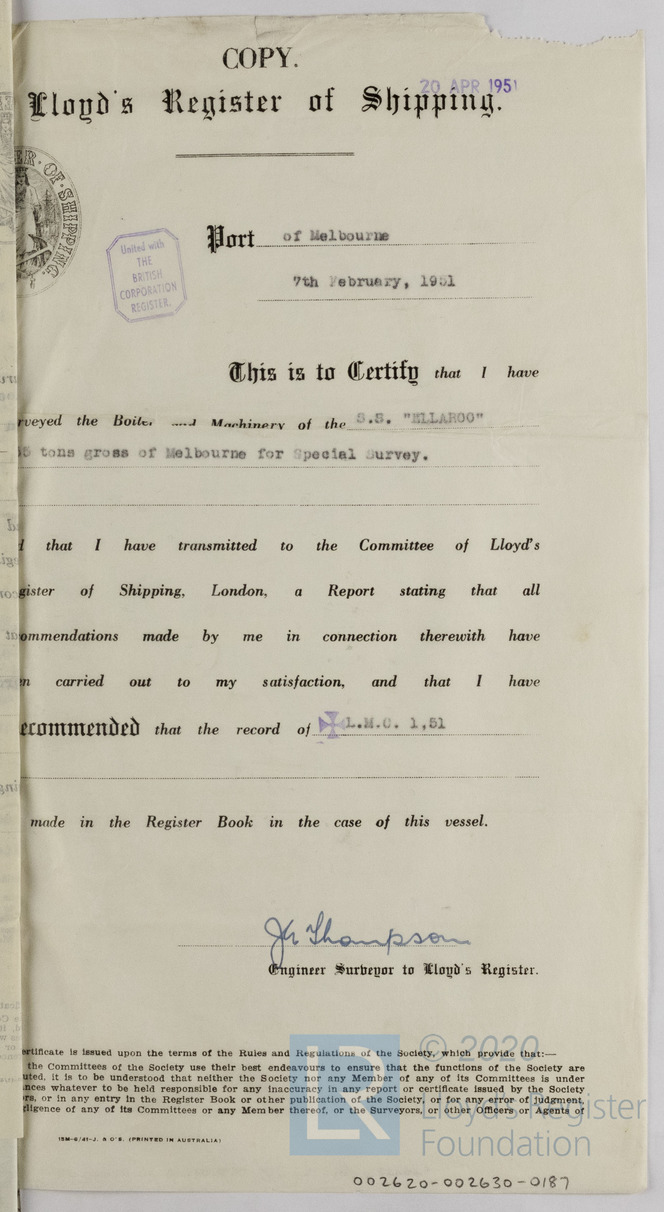 COPY.
20 APR 1951
Lloyd's Register of Shipping.
ER. OF. SHIPPING.
United with
THE
BRITISH
CORPORATION
REGISTER.
Port of Melbourne
7th February, 1951
This is to Certify that I have
rveyed the Boiler and Machinery of the S.S. "ELLAROO"
5 tons gross of Melbourne for Special Survey.
that I have transmitted to the Committee of Lloyd's
gister of Shipping, London, a Report stating that all
ommendations made by me in connection therewith have
n carried out to my satisfaction, and that I have
ecommended that the record of L.M.C. 1,51
made in the Register Book in the case of this vessel.
Thompson
Engineer Surveyor to Lloyd's Register.
ertificate is issued upon the terms of the Rules and Regulations of the Society, which provide that:—
the Committees of the Society use their best endeavours to ensure that the functions of the Society are
uted, it is to be understood that neither the Society nor any Member of any of its Committees is under
nces whatever to be held responsible for any inaccuracy in any report or certificate issued by the Society
rs, or in any entry in the Register Book or other publication of the Society, or for any error of judgment,
gligence of any of its Committees or any Member thereof, or the Surveyors, or other Officers or Agents of
(PRINTED IN AUSTRALIA)
LR
© 2020
Lloyd's Register
Foundation
002620-002630-0187